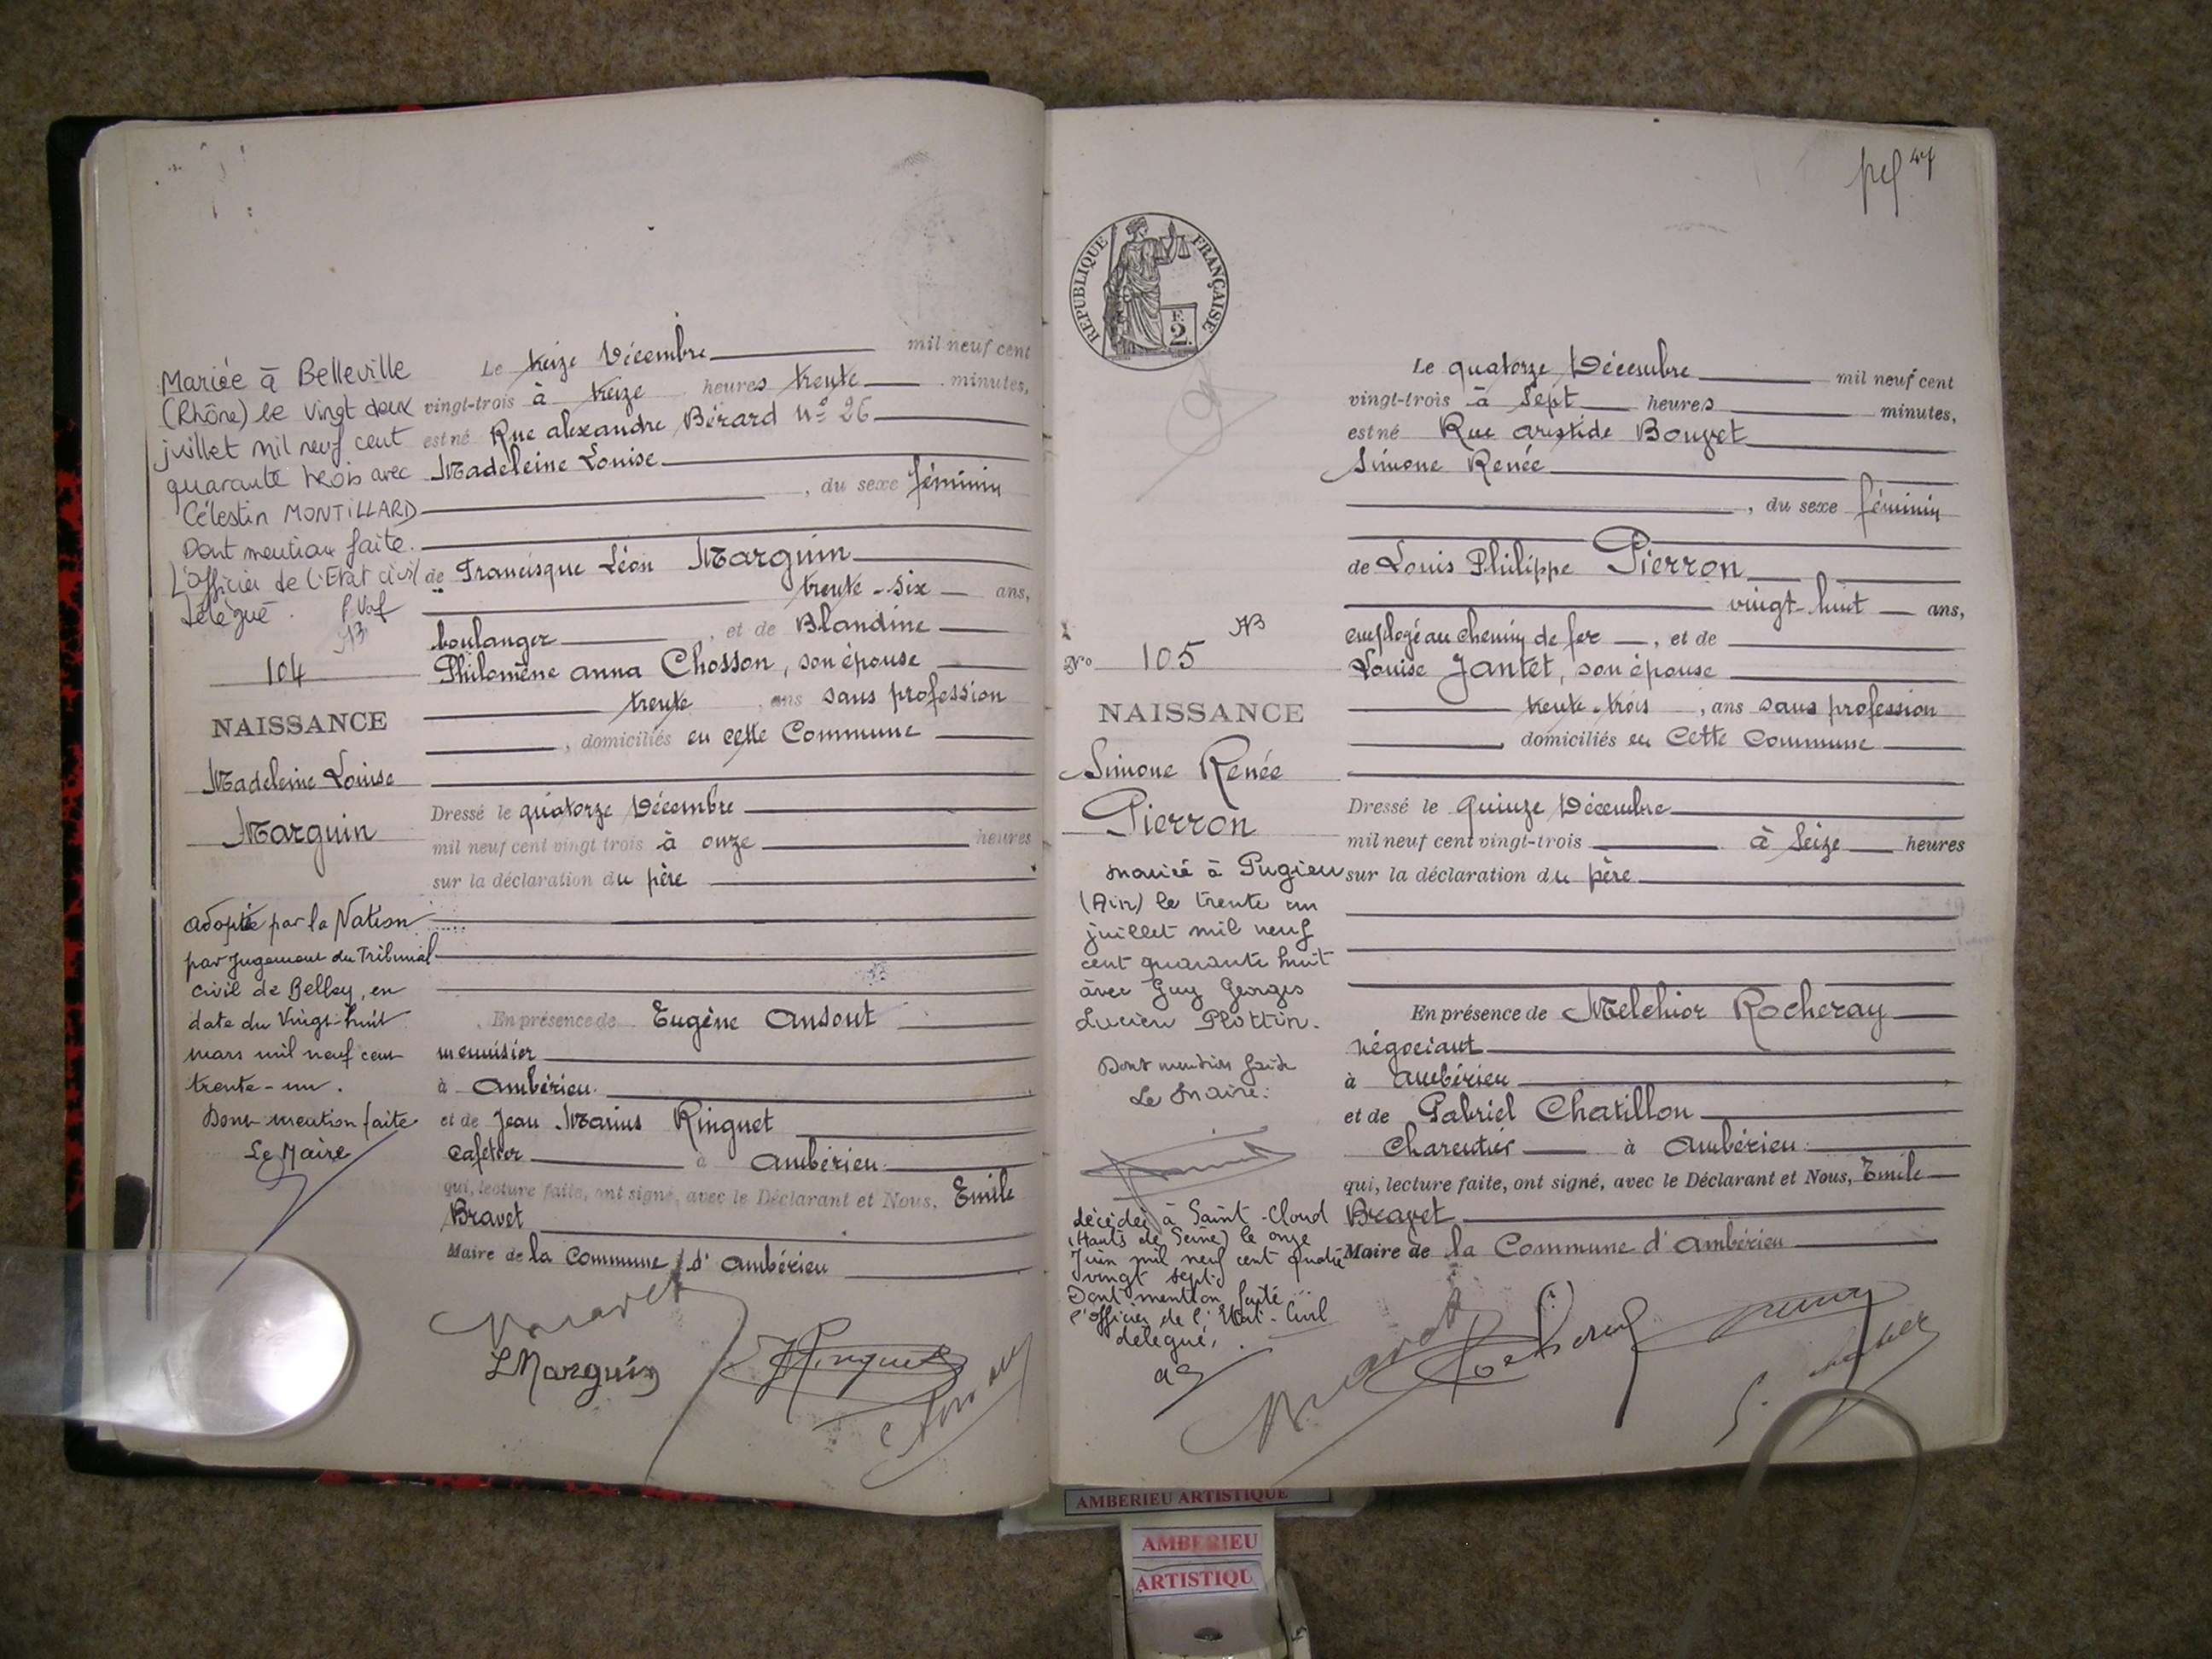 Mariée à Belleville
(Rhône) le vingt deux
juillet mil neuf cent
quarante trois avec
Célestin MONTILLARD
Dont mention faite.
L'officier de l'Etat civil
délégué.
104
NAISSANCE
Madeleine Louise
Marguin
adoptée par la Nation
par Jugement du Tribunal
civil de Belley, en
date du Vingt-huit
mars mil neuf cent
trente-un.
Dont mention faite
Le Maire
Le treize Décembre mil neuf cent
vingt-trois à treize heures trente minutes,
est né Rue alexandre Bérard n° 26
Madeleine Louise
, du sexe féminin
de Francisque Léon Marguin
trente-six ans,
boulanger, et de Blandine
Philomène anna Chosson, son épouse
trente ans sans profession
, domiciliés en cette Commune
Dressé le quatorze Décembre
mil neuf cent vingt trois à onze heures
sur la déclaration du père
En présence de Eugène Ansout
menuisier
à Ambérieu
et de Jean Marius Ringuet
cafetier à Ambérieu
qui, lecture faite, ont signé, avec le Déclarant et Nous, Emile
Bravet
Maire de la Commune d'Ambérieu
LMarguin
47
RÉPUBLIQUE FRANÇAISE
F.
2
N° 105
NAISSANCE
Simone Renée
Pierron
mariée à Pugieu
(Ain) le trente un
juillet mil neuf
cent quarante huit
avec Guy Georges
Lucien Plottin.
Dont mention faite
Le Maire:
décédée à Saint-Cloud
(Hauts de Seine) le onze
Juin mil neuf cent quatre
vingt sept.
Dont mention faite
l'officier de l'Etat-Civil
délégué,
Le quatorze Décembre mil neuf cent
vingt-trois à Sept heures minutes,
est né Rue Aristide Bouvet
Simone Renée
, du sexe féminin
de Louis Philippe Pierron
vingt-huit ans,
employé au chemin de fer, et de
Louise Jantet, son épouse
trente-trois, ans sans profession
domiciliés en Cette Commune
Dressé le quinze Décembre
mil neuf cent vingt-trois à Seize heures
sur la déclaration du père
En présence de Melchior Rocheray
négociant
à Ambérieu
et de Gabriel Chatillon
Charcutier à Ambérieu
qui, lecture faite, ont signé, avec le Déclarant et Nous, Emile
Bravet
Maire de la Commune d'Ambérieu
AMBERIEU ARTISTIQUE
AMBERIEU
ARTISTIQU